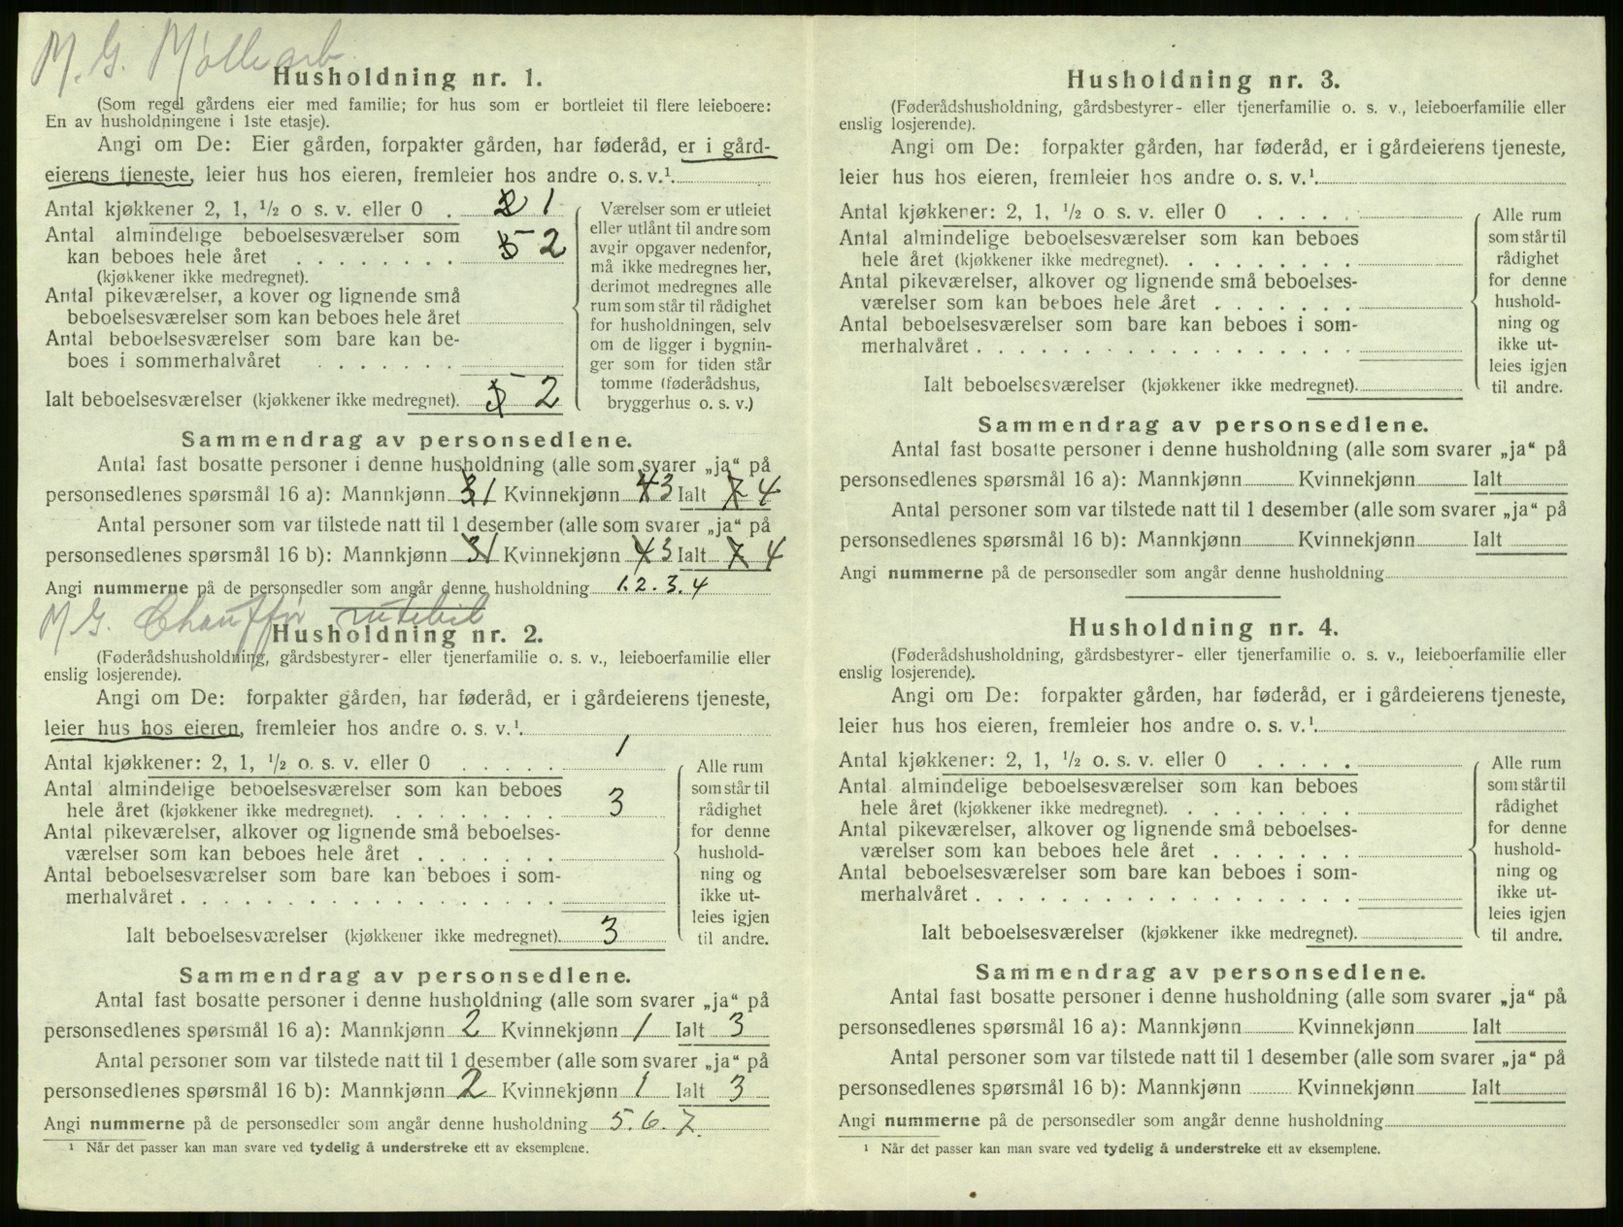 M. G. Møllearb
Husholdning nr. 1.
(Som regel gårdens eier med familie; for hus som er bortleiet til flere leieboere:
En av husholdningene i 1ste etasje).
Angi om De: Eier gården, forpakter gården, har føderåd, er i gård-
eierens tjeneste, leier hus hos eieren, fremleier hos andre o. s. v.¹.
Antal kjøkkener 2, 1, ½ o s. v. eller 0 . 2 1
Antal almindelige beboelsesværelser som
kan beboes hele året . . . . . . . . 5 2
(kjøkkener ikke medregnet).
Antal pikeværelser, a kover og lignende små
beboelsesværelser som kan beboes hele året
Antal beboelsesværelser som bare kan be-
boes i sommerhalvåret . . . . . . .
Ialt beboelsesværelser (kjøkkener ikke medregnet). 5 2
Værelser som er utleiet
eller utlånt til andre som
avgir opgaver nedenfor,
må ikke medregnes her,
derimot medregnes alle
rum som står til rådighet
for husholdningen, selv
om de ligger i bygnin-
ger som for tiden står
tomme (føderådshus,
bryggerhus o. s. v.)
Sammendrag av personsedlene.
Antal fast bosatte personer i denne husholdning (alle som svarer „ja“ på
personsedlenes spørsmål 16 a): Mannkjønn 3 1 Kvinnekjønn 4 3 Ialt 7 4
Antal personer som var tilstede natt til 1 desember (alle som svarer „ja“ på
personsedlenes spørsmål 16 b): Mannkjønn 3 1 Kvinnekjønn 4 3 Ialt 7 4
Angi nummerne på de personsedler som angår denne husholdning 1. 2. 3. 4
M G. Chauffør rutebil
Husholdning nr. 2.
(Føderådshusholdning, gårdsbestyrer- eller tjenerfamilie o. s. v., leieboerfamilie eller
enslig losjerende).
Angi om De: forpakter gården, har føderåd, er i gårdeierens tjeneste,
leier hus hos eieren, fremleier hos andre o. s. v.¹.
Antal kjøkkener: 2, 1, ½ o. s. v. eller 0 . . . . . 1
Antal almindelige beboelsesværelser som kan beboes
hele året (kjøkkener ikke medregnet). . . . . . . . . 3
Antal pikeværelser, alkover og lignende små beboelses-
værelser som kan beboes hele året . . . . . . .
Antal beboelsesværelser som bare kan beboes i som-
merhalvåret . . . . . . . . . . . . . . . . .
Ialt beboelsesværelser (kjøkkener ikke medregnet). 3
Alle rum
som står til
rådighet
for denne
hushold-
ning og
ikke ut-
leies igjen
til andre.
Sammendrag av personsedlene.
Antal fast bosatte personer i denne husholdning (alle som svarer „ja“ på
personsedlenes spørsmål 16 a): Mannkjønn 2 Kvinnekjønn 1 Ialt 3
Antal personer som var tilstede natt til 1 desember (alle som svarer „ja“ på
personsedlenes spørsmål 16 b): Mannkjønn 2 Kvinnekjønn 1 Ialt 3
Angi nummerne på de personsedler som angår denne husholdning 5. 6. 7.
¹ Når det passer kan man svare ved tydelig å understreke ett av eksemplene.
Husholdning nr. 3.
(Føderådshusholdning, gårdsbestyrer- eller tjenerfamilie o. s. v., leieboerfamilie eller
enslig losjerende).
Angi om De: forpakter gården, har føderåd, er i gårdeierens tjeneste,
leier hus hos eieren, fremleier hos andre o. s. v.¹.
Antal kjøkkener: 2, 1, ½ o. s. v. eller 0 . . . . .
Antal almindelige beboelsesværelser som kan beboes
hele året (kjøkkener ikke medregnet). . . . . . . . .
Antal pikeværelser, alkover og lignende små beboelses-
værelser som kan beboes hele året . . . . . . .
Antal beboelsesværelser som bare kan beboes i som-
merhalvåret . . . . . . . . . . . . . . . . .
Ialt beboelsesværelser (kjøkkener ikke medregnet).
Alle rum
som står til
rådighet
for denne
hushold-
ning og
ikke ut-
leies igjen
til andre.
Sammendrag av personsedlene.
Antal fast bosatte personer i denne husholdning (alle som svarer „ja“ på
personsedlenes spørsmål 16 a): Mannkjønn Kvinnekjønn Ialt
Antal personer som var tilstede natt til 1 desember (alle som svarer „ja“ på
personsedlenes spørsmål 16 b): Mannkjønn Kvinnekjønn Ialt
Angi nummerne på de personsedler som angår denne husholdning
Husholdning nr. 4.
(Føderådshusholdning, gårdsbestyrer- eller tjenerfamilie o. s. v., leieboerfamilie eller
enslig losjerende).
Angi om De: forpakter gården, har føderåd, er i gårdeierens tjeneste,
leier hus hos eieren, fremleier hos andre o. s. v.¹.
Antal kjøkkener: 2, 1, ½ o. s. v. eller 0 . . . . .
Antal almindelige beboelsesværelser som kan beboes
hele året (kjøkkener ikke medregnet). . . . . . . . .
Antal pikeværelser, alkover og lignende små beboelses-
værelser som kan beboes hele året . . . . . . .
Antal beboelsesværelser som bare kan beboes i som-
merhalvåret . . . . . . . . . . . . . . . . .
Ialt beboelsesværelser (kjøkkener ikke medregnet).
Alle rum
som står til
rådighet
for denne
hushold-
ning og
ikke ut-
leies igjen
til andre.
Sammendrag av personsedlene.
Antal fast bosatte personer i denne husholdning (alle som svarer „ja“ på
personsedlenes spørsmål 16 a): Mannkjønn Kvinnekjønn Ialt
Antal personer som var tilstede natt til 1 desember (alle som svarer „ja“ på
personsedlenes spørsmål 16 b): Mannkjønn Kvinnekjønn Ialt
Angi nummerne på de personsedler som angår denne husholdning
¹ Når det passer kan man svare ved tydelig å understreke ett av eksemplene.